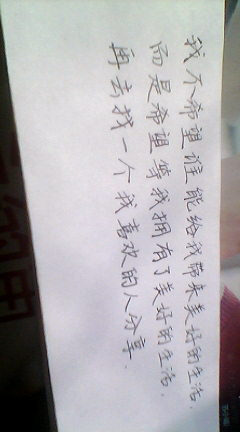 我不希望谁能给我带来美好的生活.
而是希望等我拥有了美好的生活.
再去找一个我喜欢的人分享.